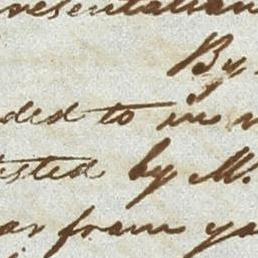 resentation
By
ded to in
ested by M.
ar from ya